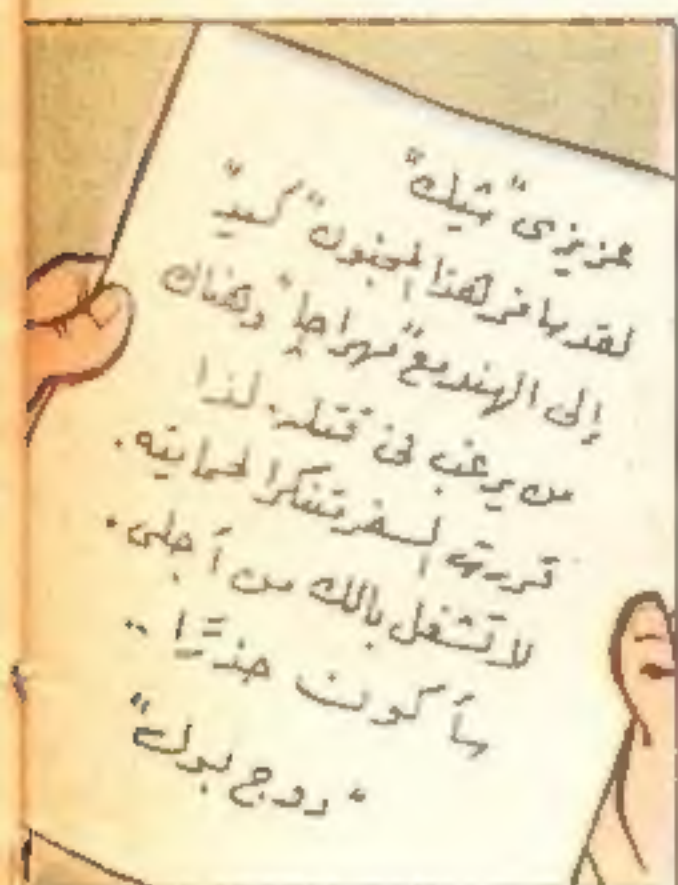 عزيزى "شيك"
لقد سافر هذا المجنون "كيد"
إلى الهند مع "مهراجا" وهناك
من يرغب فى قتله. لذا
قررت السفر متنكرا لحمايته.
لا تشغل بالك من أجلى.
سأكون حذرًا ..
"دوج بول"